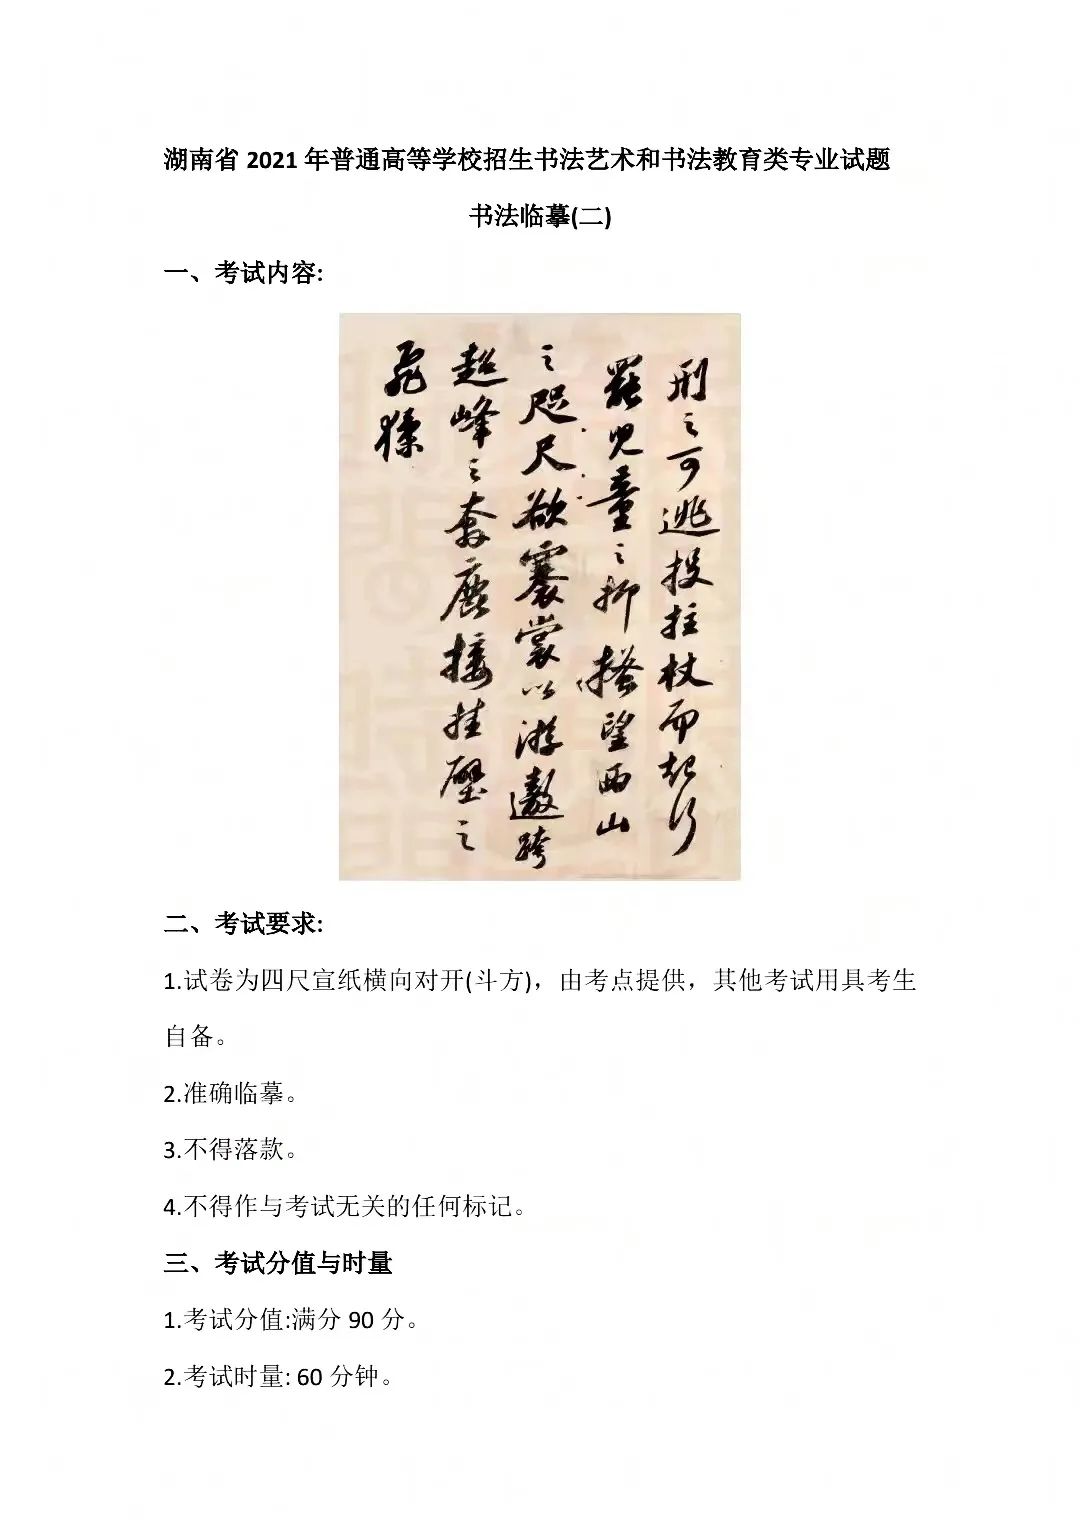 湖南省 2021 年普通高等学校招生书法艺术和书法教育类专业试题
书法临摹(二)
一、考试内容:
刑之可逃投拄杖而起行
罷兒童之抑搔望西山
之咫尺欲褰裳以游遨跨
超峰之奔鹿接挂壁之
飛猱
二、考试要求:
1.试卷为四尺宣纸横向对开(斗方)，由考点提供，其他考试用具考生
自备。
2.准确临摹。
3.不得落款。
4.不得作与考试无关的任何标记。
三、考试分值与时量
1.考试分值:满分 90 分。
2.考试时量: 60 分钟。